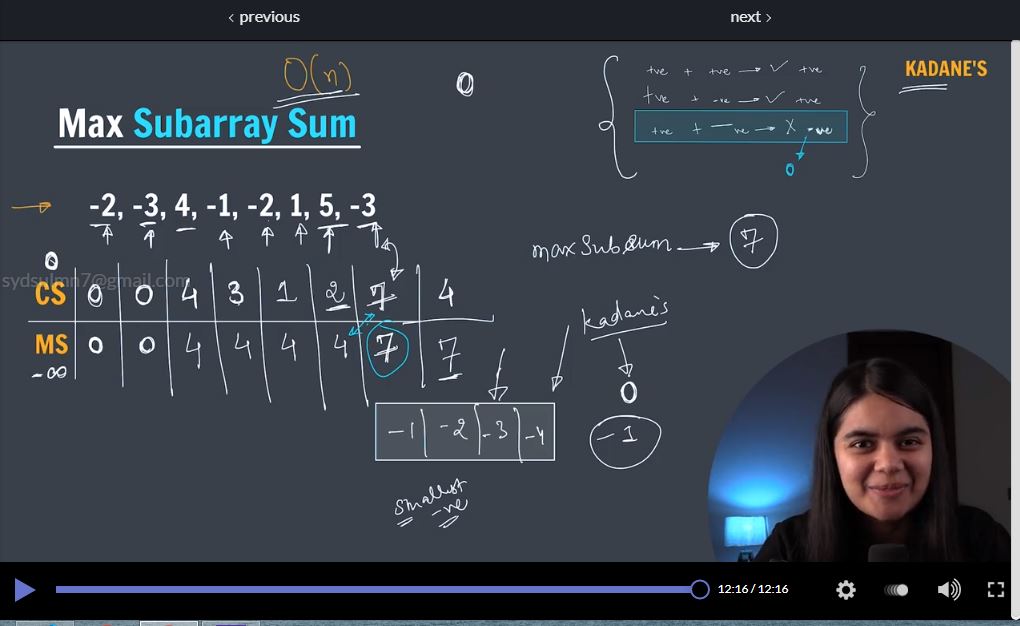 ‹ previous
next ›
O(n)
0
Max Subarray Sum
+ve + +ve → ✓ +ve
+ve + -ve → ✓ +ve
+ve + -ve → X -ve
0
KADANE'S
→ -2, -3, 4, -1, -2, 1, 5, -3
maxSubSum → 7
0
sydsulmn7@gmail.com
CS 0 0 4 3 1 2 7 4
MS 0 0 4 4 4 4 7 7
-∞
kadane's
0
-1 -2 -3 -4
-1
smallest
-ve
12:16 / 12:16